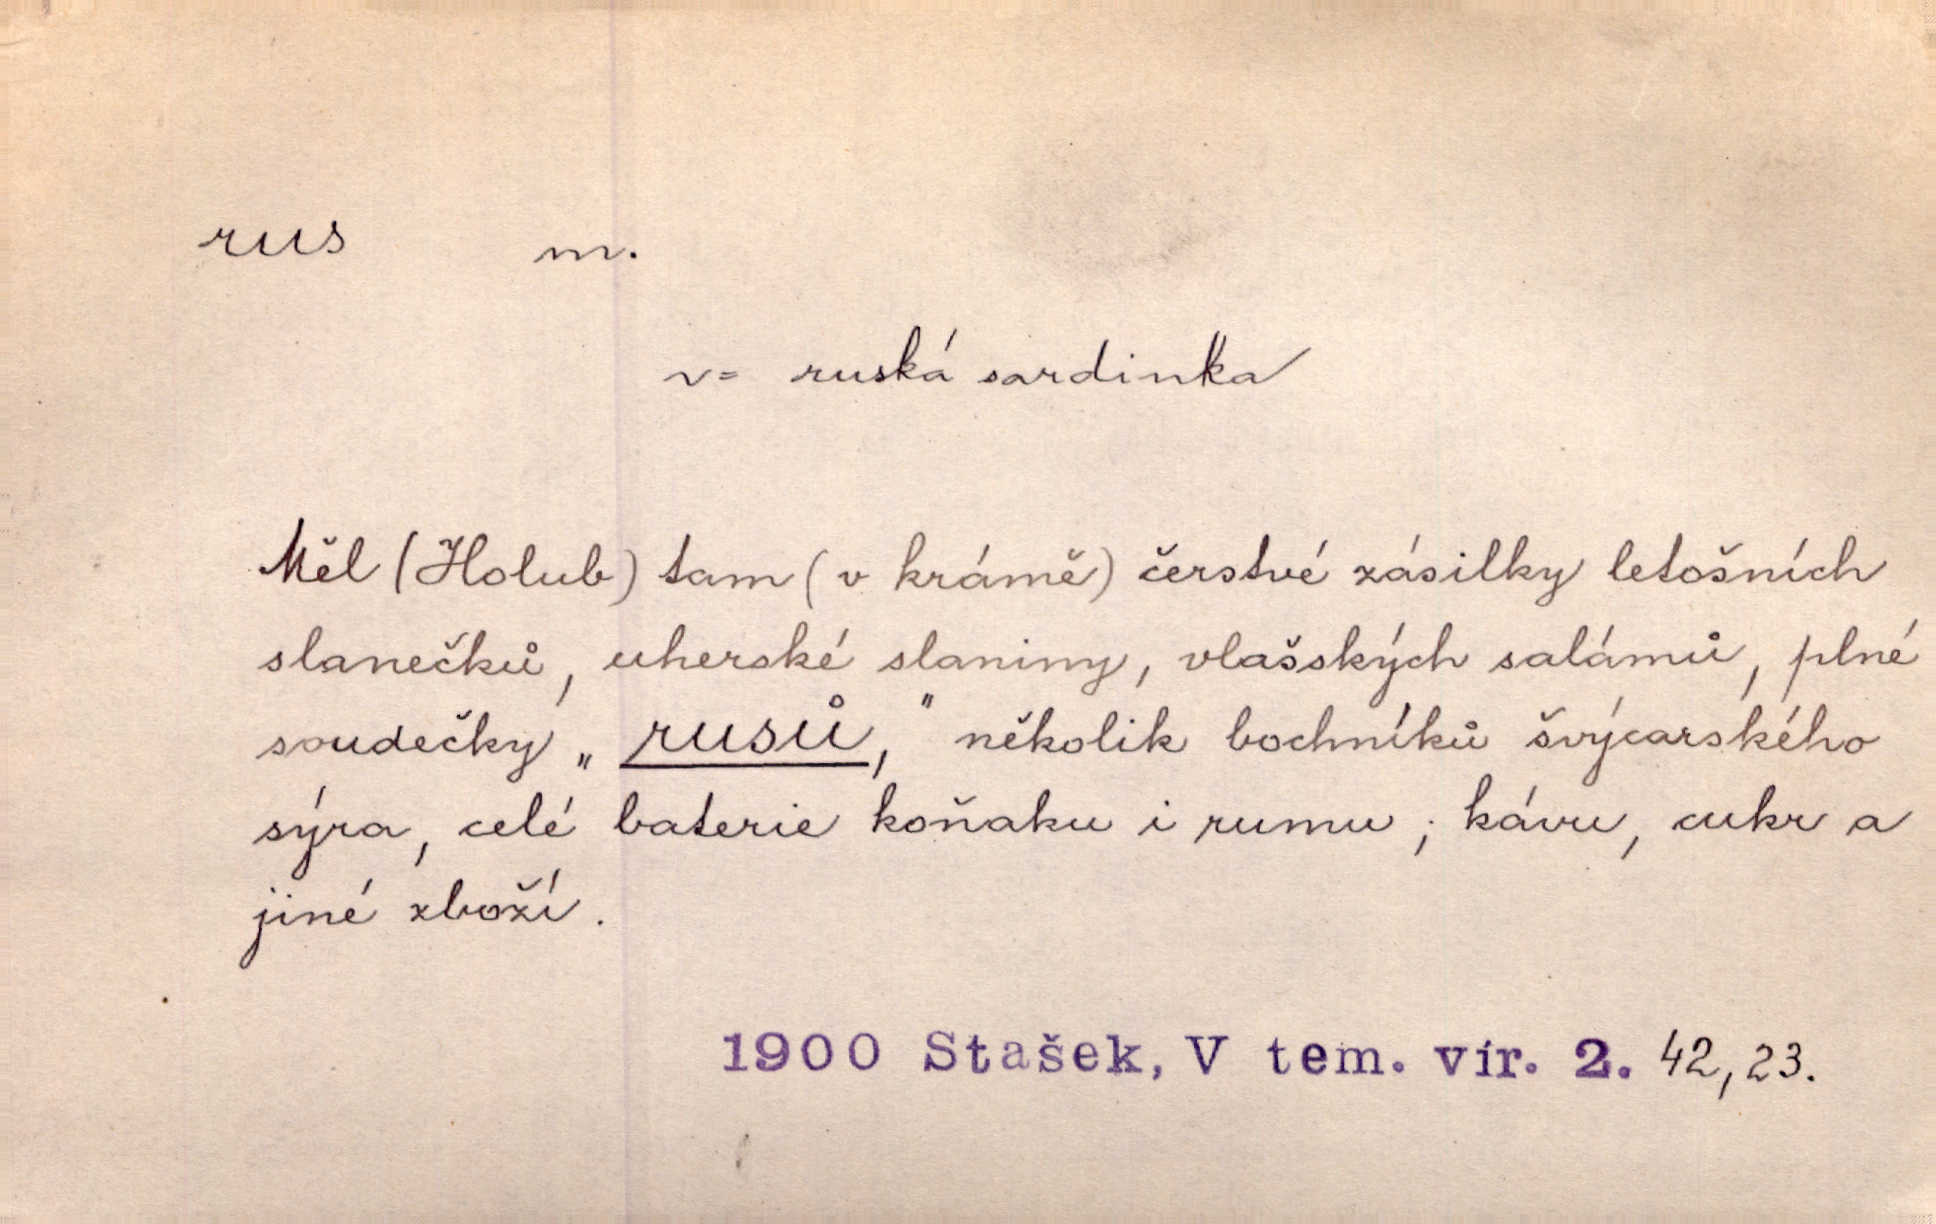 rus m.
v= ruská sardinka
Měl (Holub) tam (v krámě) čerstvé zásilky letošních
slanečků, uherské slaniny, vlašských salámů, plné
soudečky „rusů,“ několik bochníků švýcarského
sýra, celé baterie koňaku i rumu; kávu, cukr a
jiné zboží.
1900 Stašek, V tem. vír. 2. 42, 23.